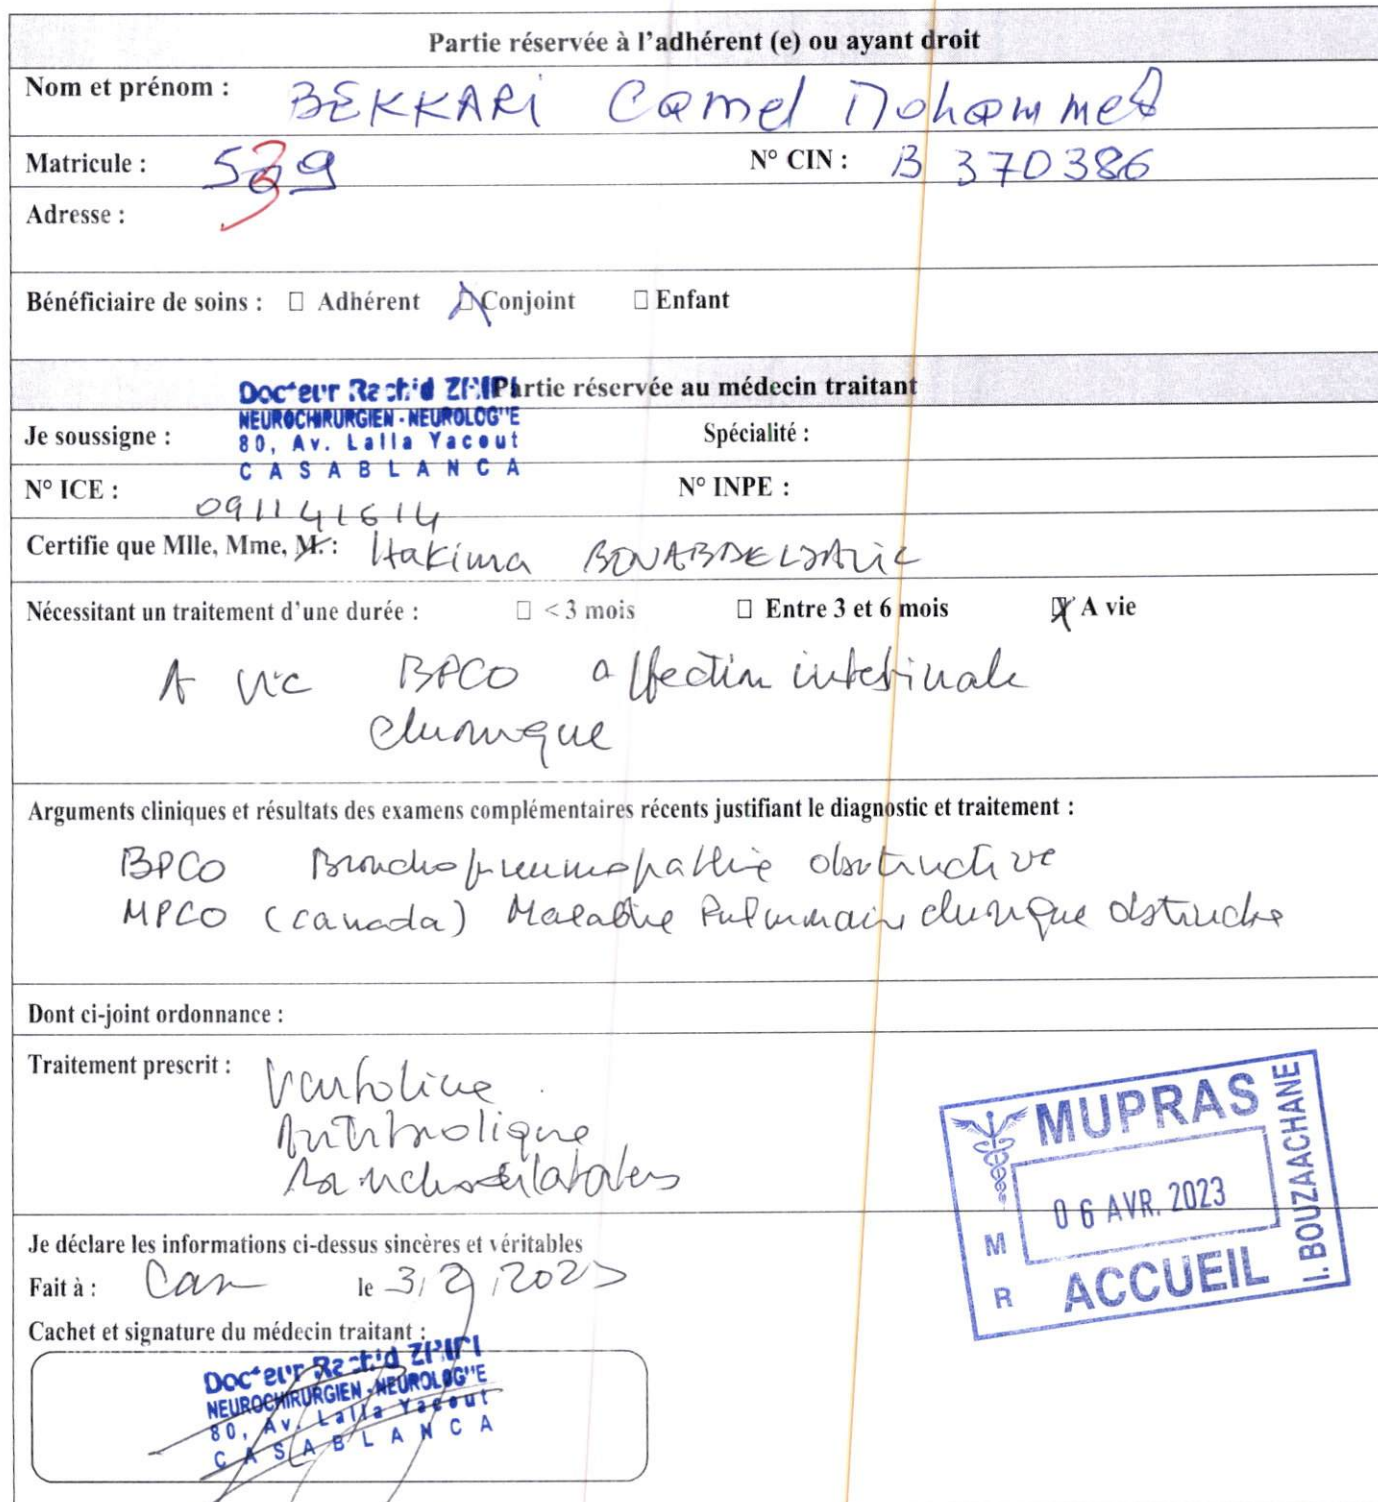 Partie réservée à l'adhérent (e) ou ayant droit
Nom et prénom : BEKKARI Camel Mohammed
Matricule : 539 N° CIN : B 370386
Adresse :
Bénéficiaire de soins : □ Adhérent □ Conjoint □ Enfant
Docteur Rachid Partie réservée au médecin traitant
NEUROCHIRURGIEN - NEUROLOGUE
Je soussigne : 80, Av. Lalla Yacout Spécialité :
CASABLANCA
N° ICE : N° INPE :
091141614
Certifie que Mlle, Mme, M. : Hakima
Nécessitant un traitement d'une durée : □ < 3 mois □ Entre 3 et 6 mois □ A vie
A vie BPCO affection intestinale
chronique
Arguments cliniques et résultats des examens complémentaires récents justifiant le diagnostic et traitement :
BPCO Bronchopneumopathie obstructive
MPCO (canada) Maladie Pulmonaire chronique obstructive
Dont ci-joint ordonnance :
Traitement prescrit : Ventoline
bronchodilatateurs
MUPRAS
06 AVR. 2023
M R
ACCUEIL
I. BOUZAACHANE
Je déclare les informations ci-dessus sincères et véritables
Fait à : Casa le 3/2/2023
Cachet et signature du médecin traitant :
Docteur Rachid
NEUROCHIRURGIEN - NEUROLOGUE
80, Av. Lalla Yacout
CASABLANCA